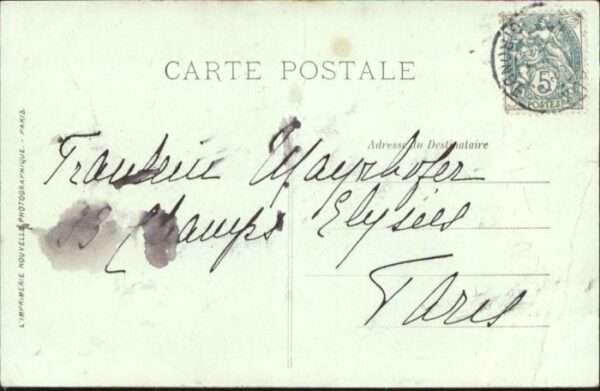 CARTE POSTALE
5c
POSTES
Adresse du Destinataire
Fraulein Mayrhofer
33 Champs Elysées
Paris
L'IMPRIMERIE NOUVELLE PHOTOGRAPHIQUE. - PARIS.